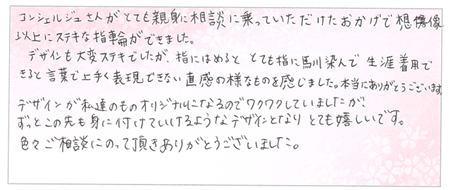 コンシェルジュさんがとても親身に相談に乗っていただけたおかげで想像
以上にステキな指輪ができました。
デザインも大変ステキでしたが、指にはめると とても指に馴染んで 生涯着用で
きると言葉で上手く表現できない直感の様なものを感じました。本当にありがとうございます
デザインが私達のものオリジナルになるのでワクワクしていましたが、
ずっとこの先も身に付けていけるようなデザインとなり とても嬉しいです。
色々ご相談にのって頂きありがとうございました。